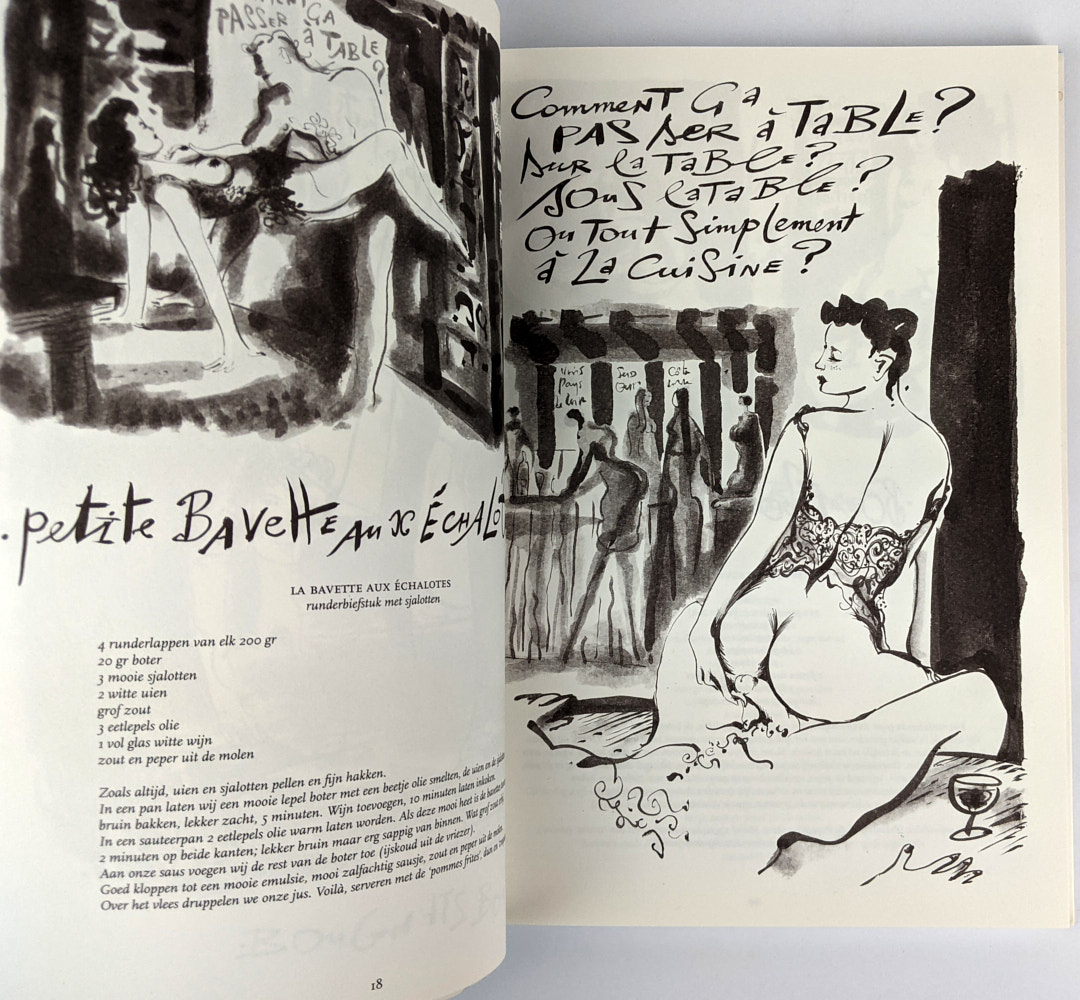 PASSER ÇA
à TABLE?
petite BAVETTE AUX ÉCHALO
LA BAVETTE AUX ÉCHALOTES
runderbiefstuk met sjalotten
4 runderlappen van elk 200 gr
20 gr boter
3 mooie sjalotten
2 witte uien
grof zout
3 eetlepels olie
1 vol glas witte wijn
zout en peper uit de molen
Zoals altijd, uien en sjalotten pellen en fijn hakken.
In een pan laten wij een mooie lepel boter met een beetje olie smelten, de uien en de
bruin bakken, lekker zacht, 5 minuten. Wijn toevoegen, 10 minuten laten inkoken.
In een sauteerpan 2 eetlepels olie warm laten worden. Als deze mooi heet is de bavette
2 minuten op beide kanten; lekker bruin maar erg sappig van binnen. Wat grof zout
Aan onze saus voegen wij de rest van de boter toe (ijskoud uit de vriezer).
Goed kloppen tot een mooie emulsie, mooi zalfachtig sausje, zout en peper uit de molen.
Over het vlees druppelen we onze jus. Voilà, serveren met de 'pommes frites', dun en
18
Comment ÇA
PASSER à TABLE?
SUR la TABLE?
SOUS LA TABLE?
OU TOUT Simplement
à LA CUISINE?
Vins
Pays
Sud
Côte